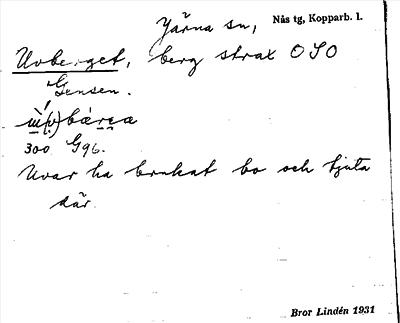 Järna sn, Nås tg, Kopparb. l.
Uvberget, berg strax OSO
Gensen.
300 G96.
Uvar ha brukat bo och tjuta
där.
Bror Lindén 1931